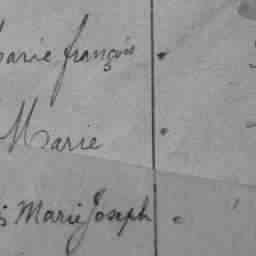 Marie françois
Marie
Marie Joseph